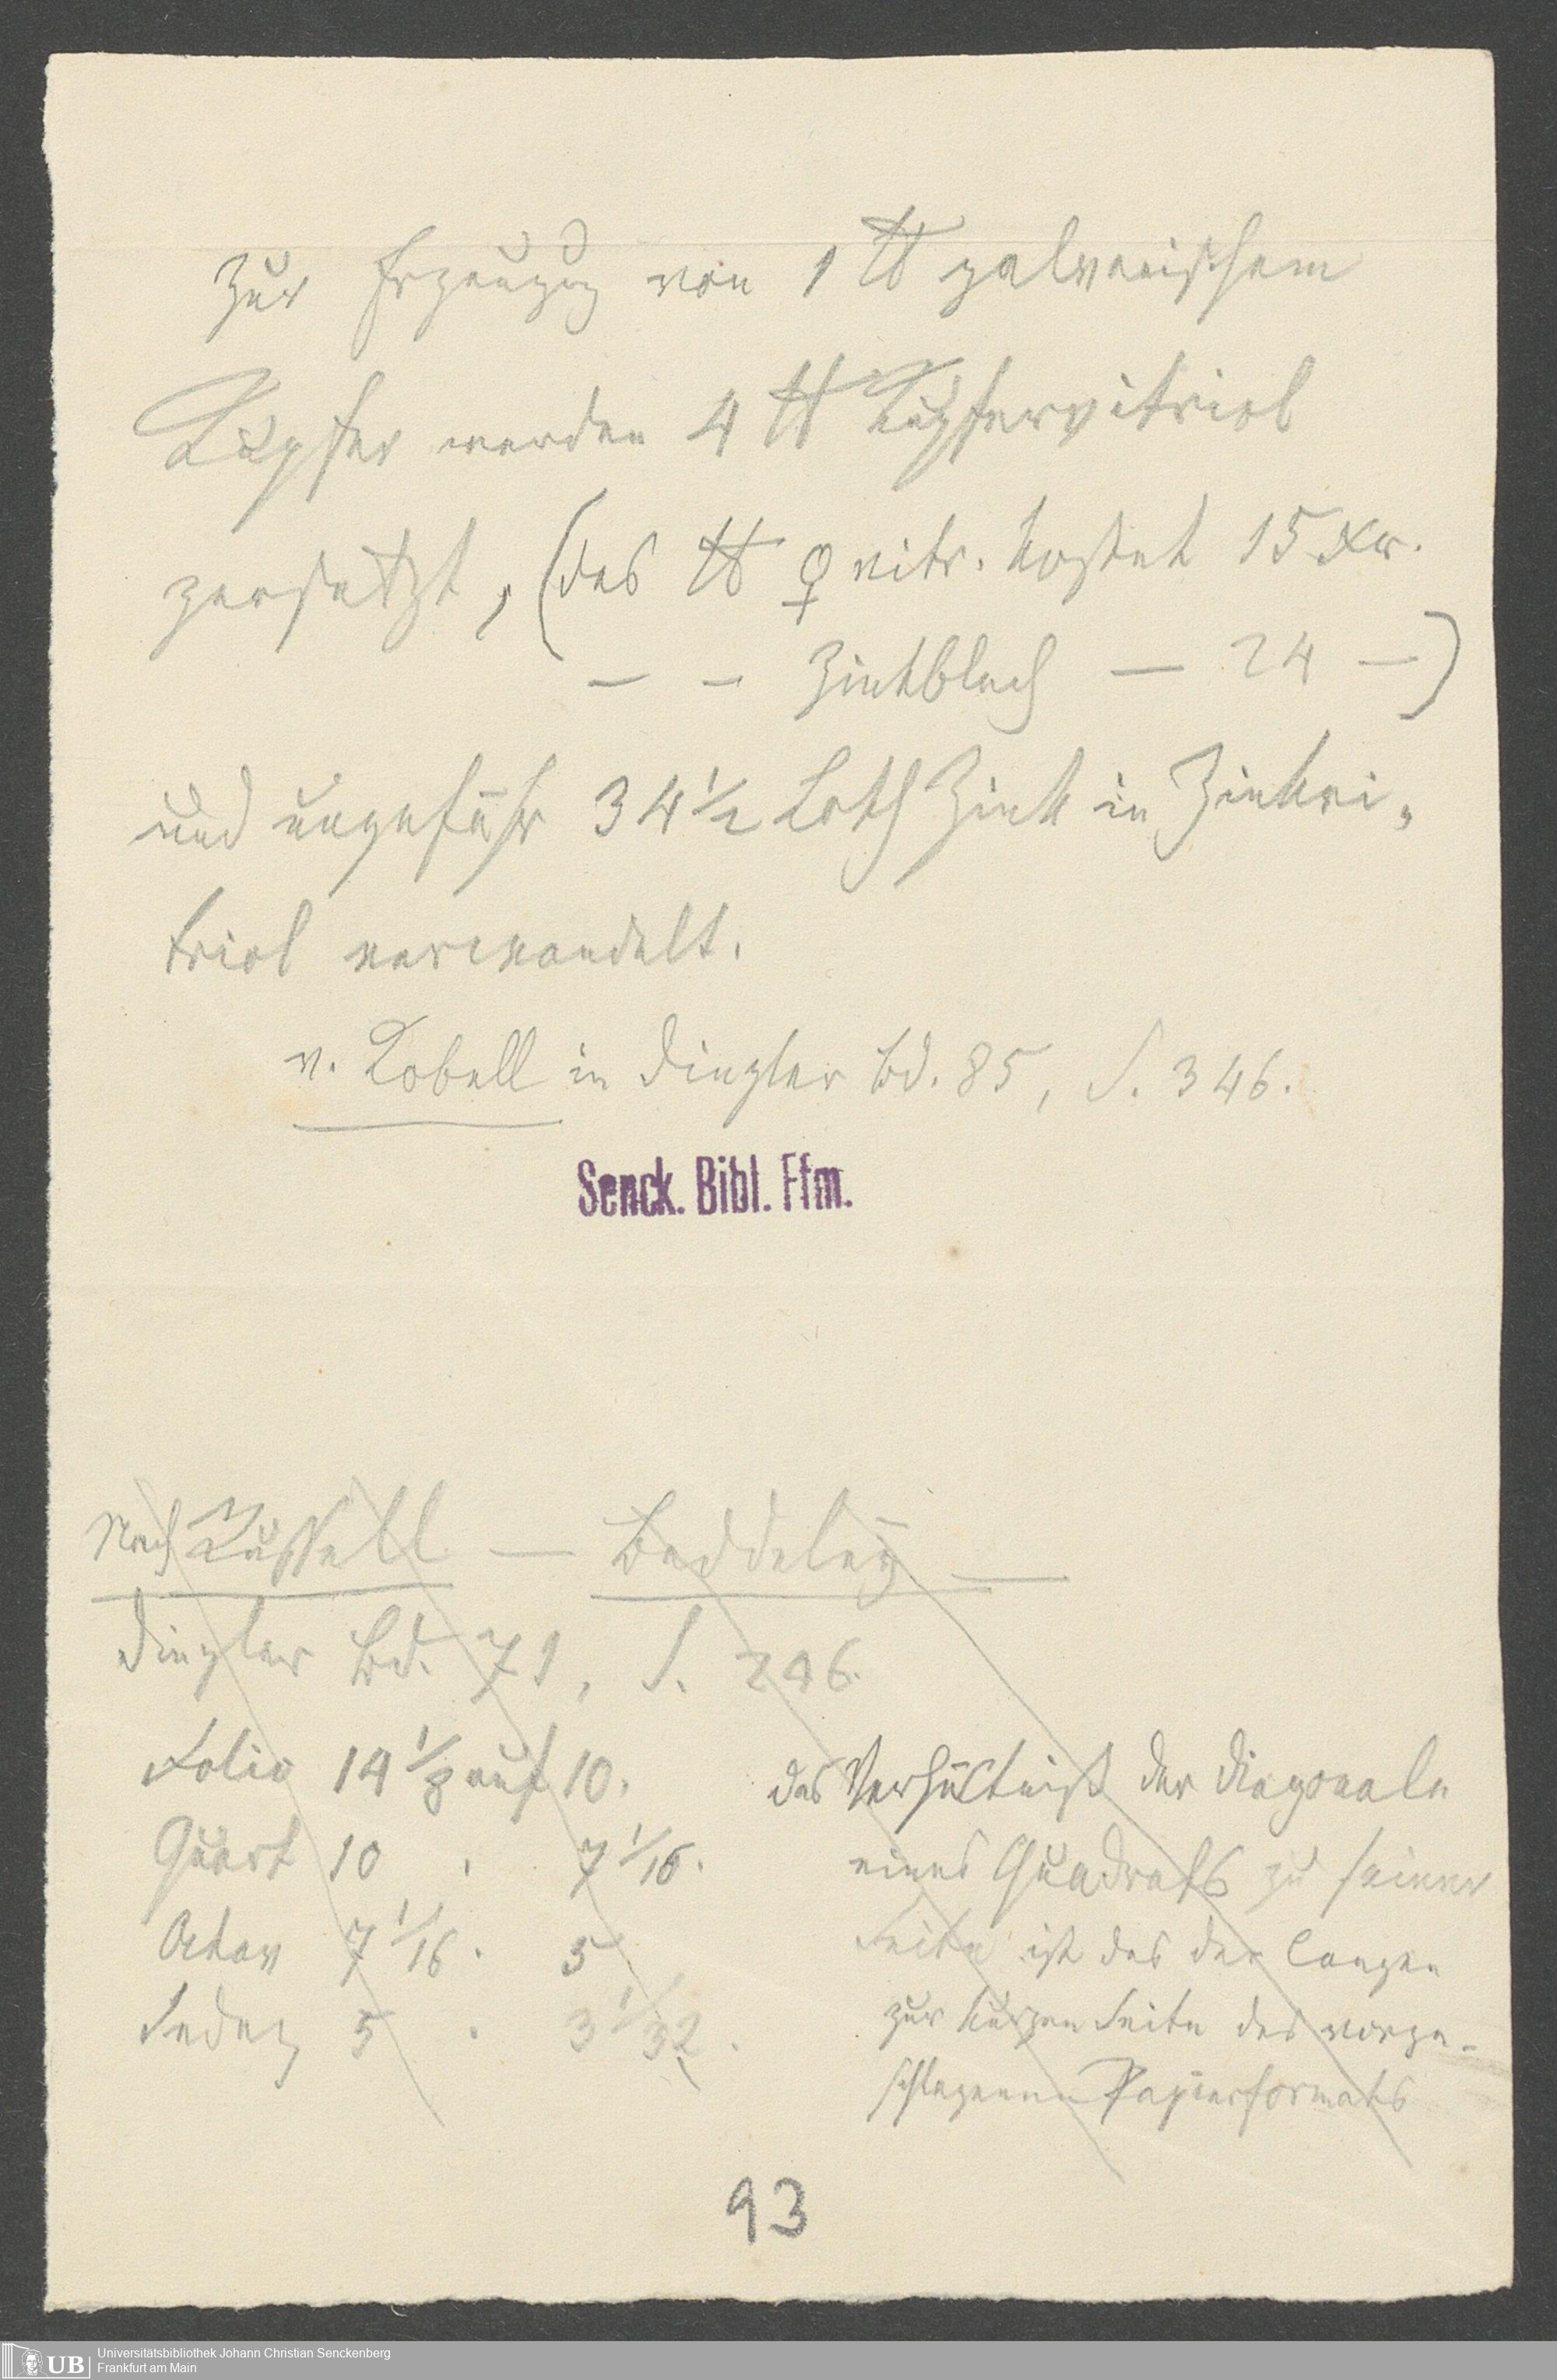 Zur Erzeugug von 1 ℔ galvanischem
Kupfer werden 4 ℔ Kupfervitriol
zersetzt, (das ℔ ♀ vitr. kostet 15 Xr.
— — Zinkblech — 24 —)
und ungefähr 34 1/2 Loth Zink in Zinkvi„
triol verwandelt.
v. Kobell in Dingler Bd. 85, S. 346.
Senck. Bibl. Ffm.
Nach Russell — Baddeley —
Dingler Bd. 71, S. 246.
Folio 14 1/8 auf 10.
Quart 10 . 7 1/16.
Octav 7 1/16 . 5
Sedez 5 . 3 1/32.
das Verhältniß der Diagonale
eines Quadrats zu seiner
Seite ist das der langen
zur kurzen Seite des vorge-
schlagenen Papierformats
93
UB Universitätsbibliothek Johann Christian Senckenberg
Frankfurt am Main